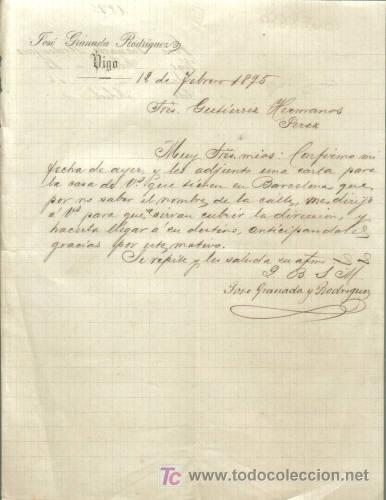 José Granada Rodríguez
Vigo
12 de Febrero 1895
Sres. Gutiérrez Hermanos
Perez
Muy Sres. mios: Confirmo mi
fecha de ayer, y les adjunto una carta para
la casa de Vs. que tienen en Barcelona que
por no saber el nombre de la calle, me dirijo
á Vs para que se sirvan cubrir la direccion, y
hacerla llegar á su destino, anticipandoles
gracias por este motivo.
Se repite y les saluda su afmo
Q B S M
Jose Granada y Rodriguez
TC www.todocoleccion.net